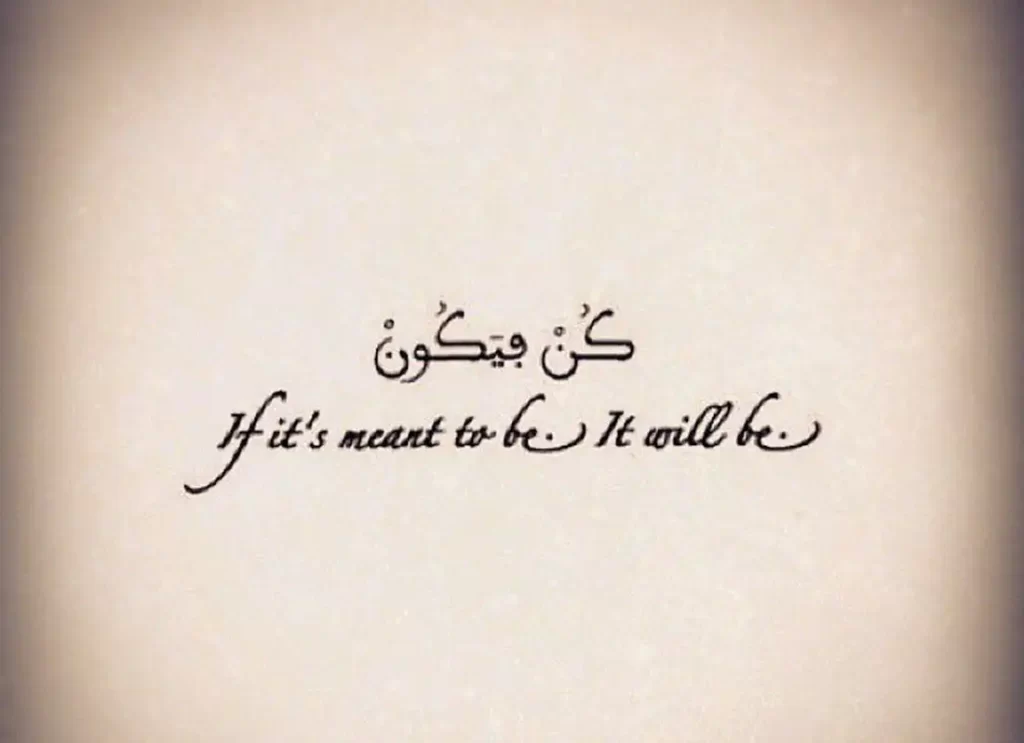 كُنْ فَيَكُونْ
If it's meant to be. It will be.